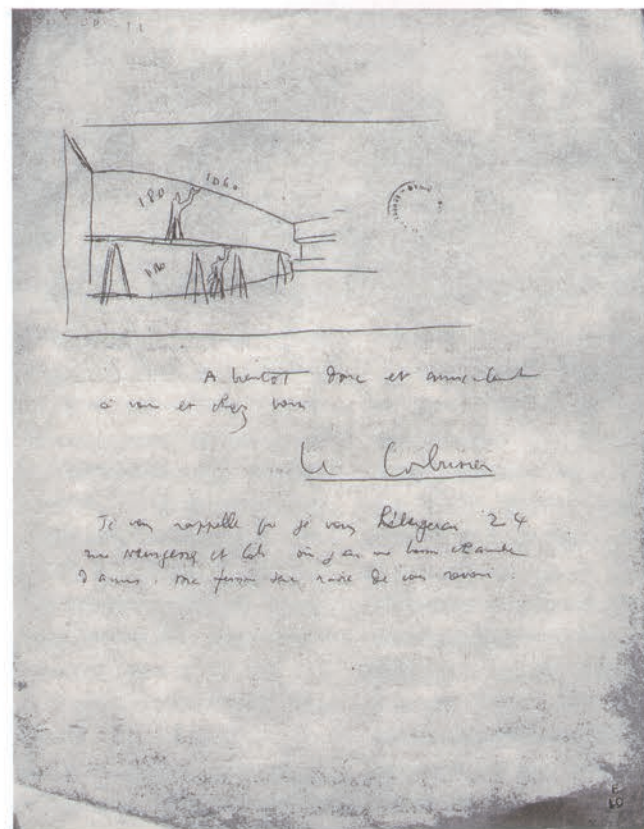 180 1060
A bientôt donc et amicalement
à vous et chez vous
Le Corbusier
Je vous rappelle que je vous hébergerai 24
rue Nungesser et Coli où j'ai une bonne chambre
d'amis. Ma femme sera ravie de vous revoir.